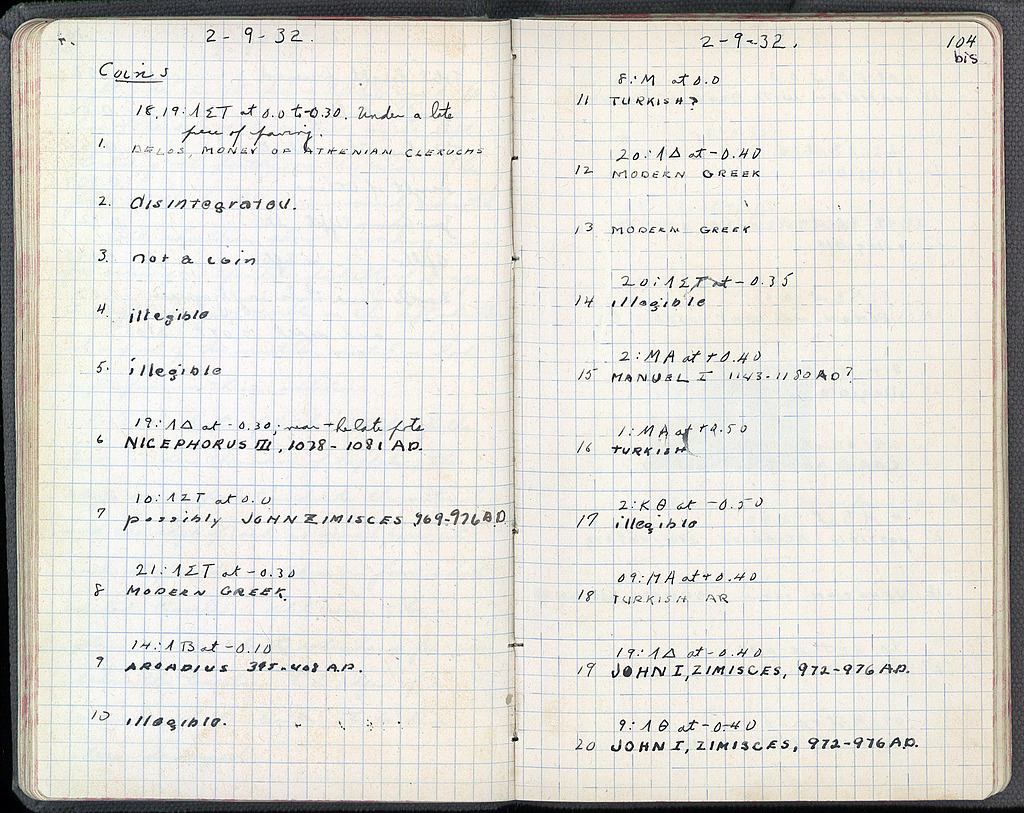 2-9-32.
Coins
18,19:ΛΣΤ at 0.0 to -0.30. Under a late
piece of paving.
1. DELOS, MONEY OF ATHENIAN CLERUCHS
2. disintegrated.
3. not a coin
4. illegible
5. illegible
19:ΛΔ at -0.30; near the late
6 NICEPHORUS III, 1078-1081 AD.
10:ΛΣΤ at 0.0
7 possibly JOHN ZIMISCES 969-976 A.D.
21:ΛΣΤ at -0.30
8 MODERN GREEK.
14:ΛΒ at -0.10
9 ARCADIUS 395-408 A.D.
10 illegible.
2-9-32.
104
bis
8:Μ at 0.0
11 TURKISH?
20:ΛΔ at -0.40
12 MODERN GREEK
13 MODERN GREEK
20:ΛΣΤ at -0.35
14 illegible
2:ΜΑ at +0.40
15 MANUEL I 1143-1180 AD?
1:ΜΑ at +0.50
16 TURKISH
2:ΚΘ at -0.50
17 illegible
09:ΜΑ at +0.40
18 TURKISH AR
19:ΛΔ at -0.40
19 JOHN I, ZIMISCES, 972-976 A.D.
9:ΛΘ at -0.40
20 JOHN I, ZIMISCES, 972-976 A.D.